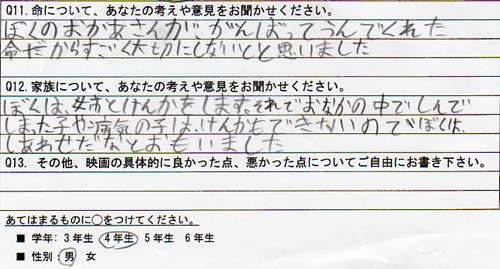 Q11. 命について、あなたの考えや意見をお聞かせください。
ぼくのおかあさんが、がんばってうんでくれた
命だからすごく大切にしないとと思いました
Q12. 家族について、あなたの考えや意見をお聞かせください。
ぼくは、姉とけんかをします。それでおなかの中でしんで
しまった子や病気の子は、けんかもできないのでぼくは、
しあわせだなとおもいました
Q13. その他、映画の具体的に良かった点、悪かった点についてご自由にお書き下さい。
あてはまるものに○をつけてください。
■ 学年: 3年生 4年生 5年生 6年生
■ 性別: 男 女